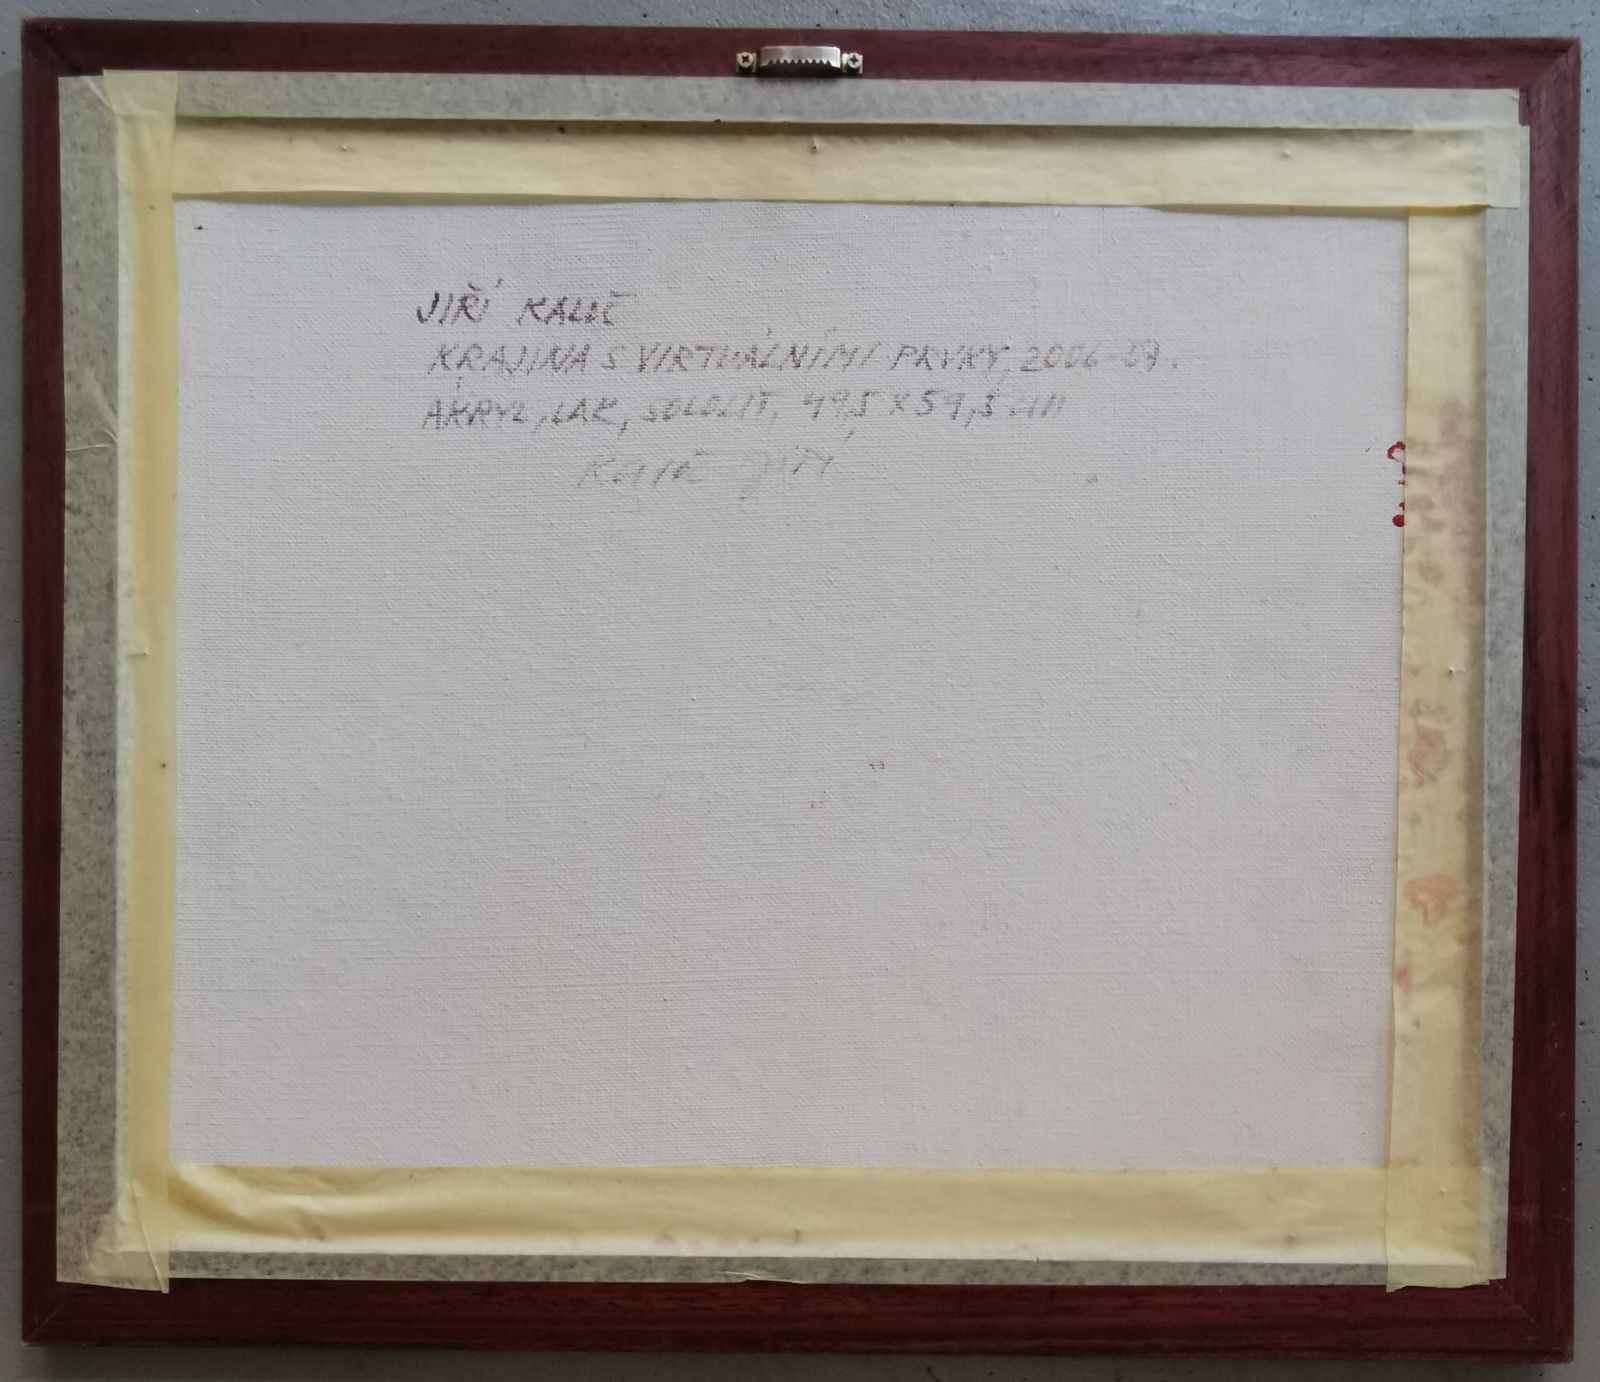 JIŘÍ KALIČ
KRAJINA S VIRTUÁLNÍMI PRVKY, 2006-07.
AKRYL, LAK, SOLOLIT, 49,5 X 59,5 cm
Jiří